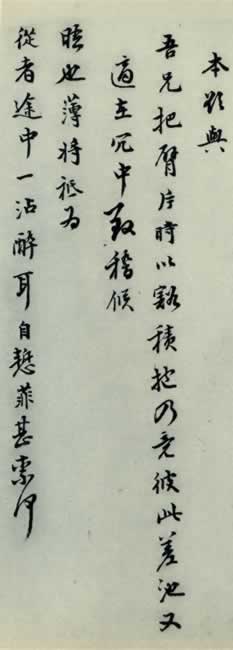 本欲與
吾兄把臂片時以豁積抱乃竟彼此差池又
適在冗中致稽候
晤也薄將祗為
從者途中一沾醉耳自愬菲甚奈何